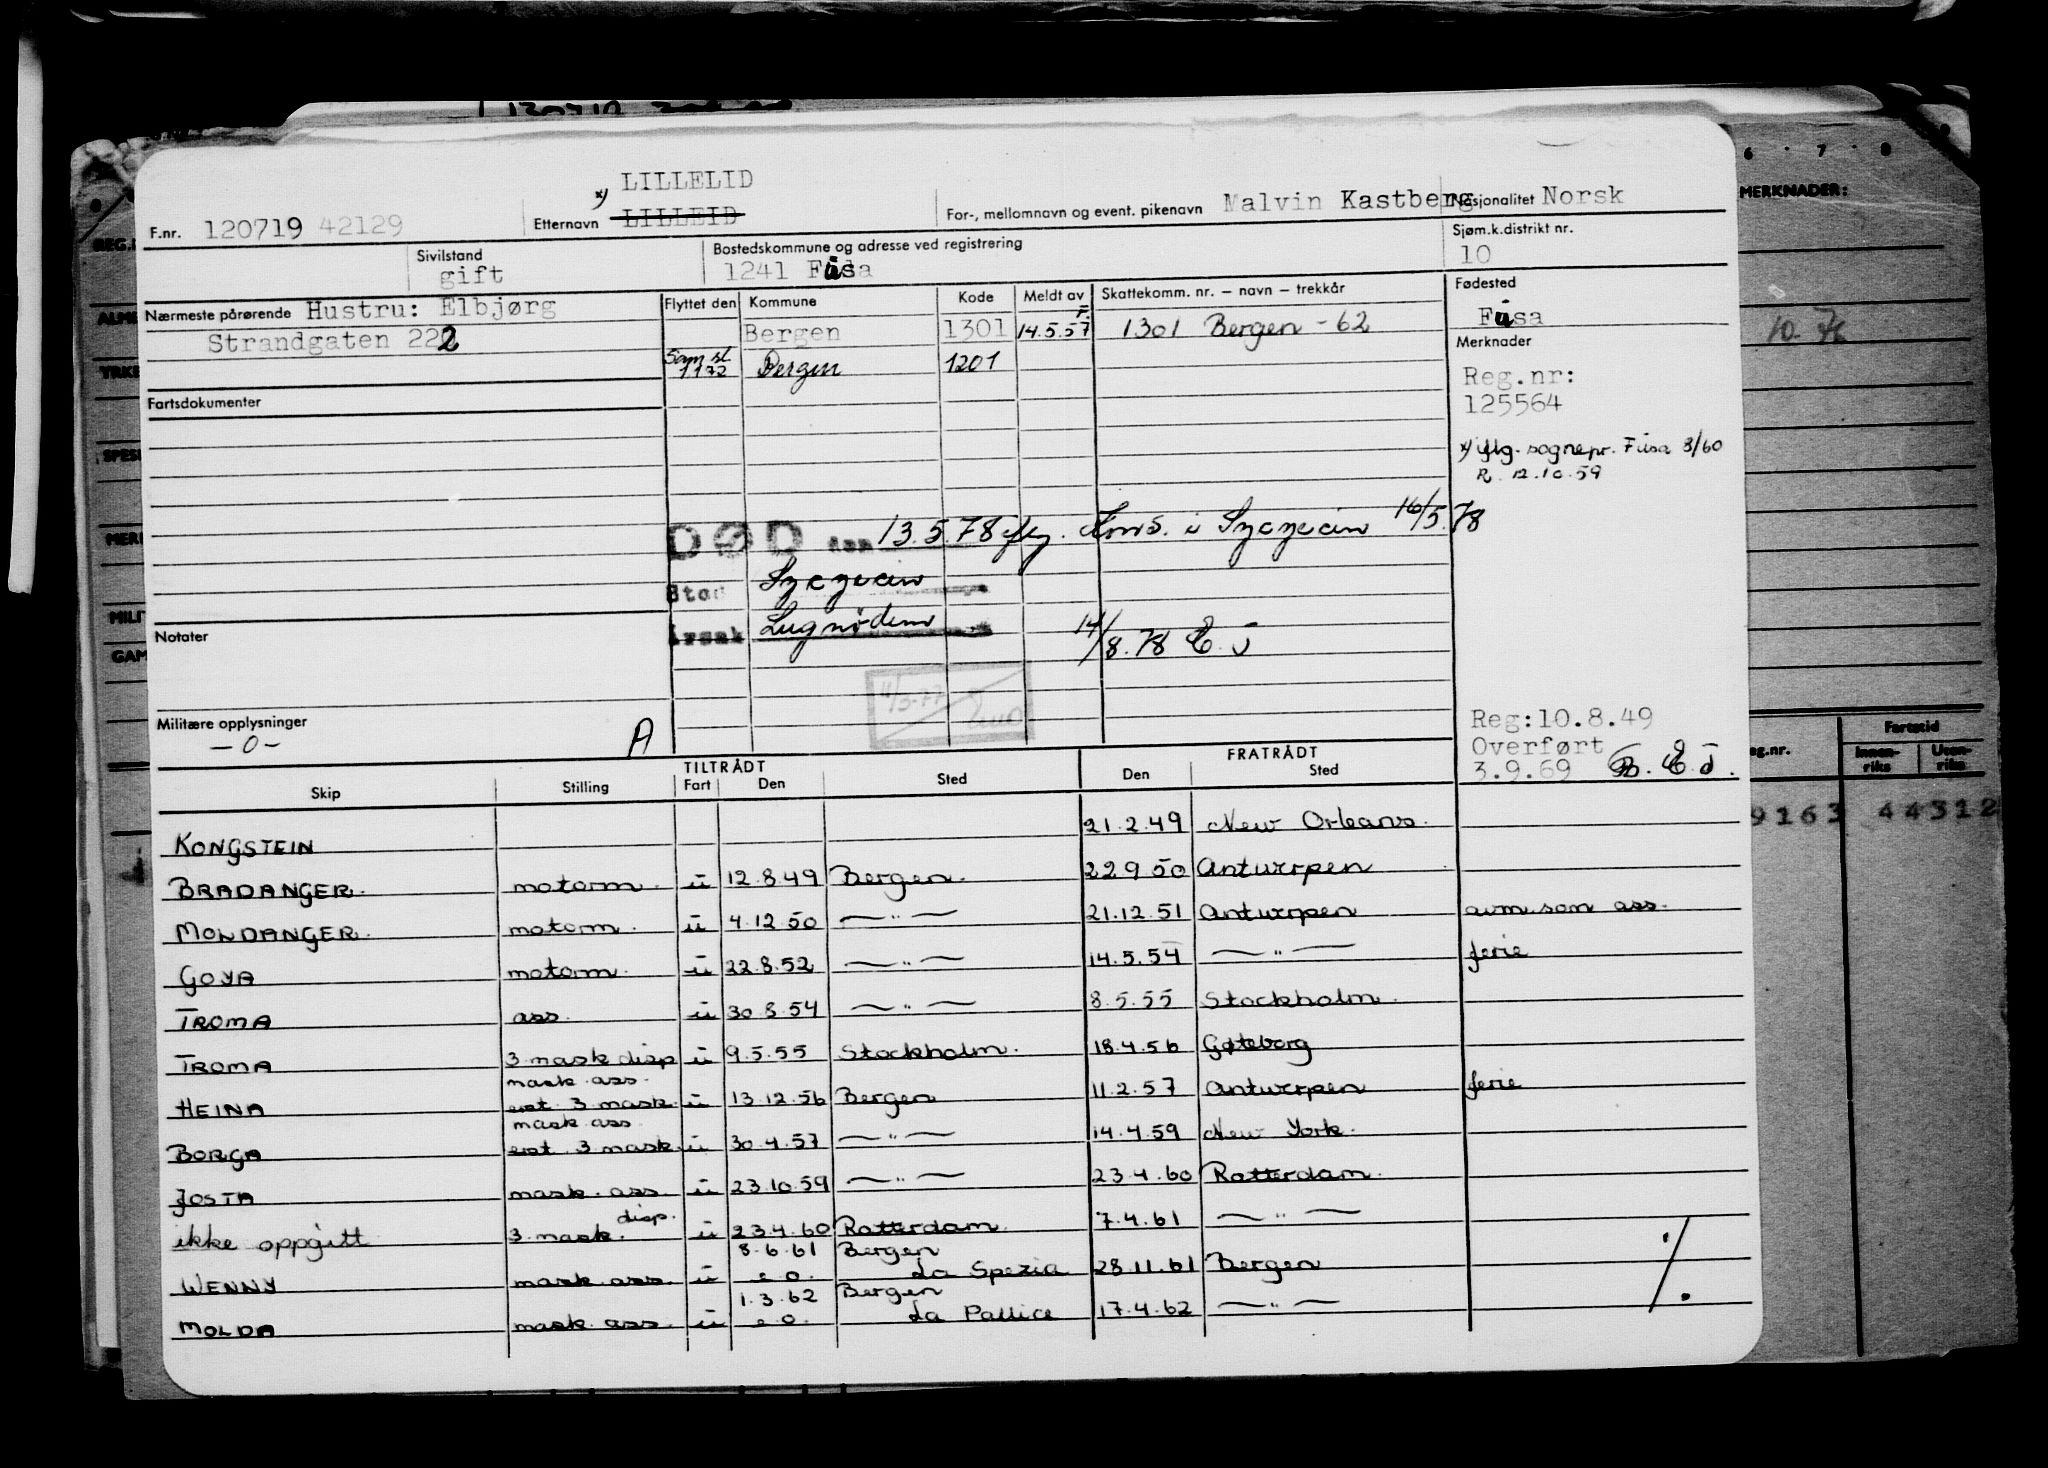 LILLELID
F.nr. 120719 42129 Etternavn x) LILLEID For-, mellomnavn og event. pikenavn Malvin Kastberg Nasjonalitet Norsk
Sivilstand gift Bostedskommune og adresse ved registrering 1241 Fusa Sjøm.k.distrikt nr. 10
Nærmeste pårørende Hustru: Elbjørg Flyttet den Kommune Kode Meldt av Skattekomm. nr. – navn – trekkår Fødested
Strandgaten 222 Bergen 1301 F. 14.5.57 1301 Bergen - 62 Fusa
Sam sl 1172 Bergen 1201 Merknader
Reg.nr:
Fartsdokumenter 125564
x) iflg. sognepr. Fusa 3/60
R. 12.10.59
DØD den 13.5.78 iflg. Kons. i Szczecin 16/5.78
Sted Szczecin
Notater Årsak 14/8.78 E.J
11/3-77
Militære opplysninger Reg:10.8.49
-0- A Overført
3.9.69 E.J.
TILTRÅDT FRATRÅDT
Skip Stilling Fart Den Sted Den Sted
KONGSTEIN 21.2.49 New Orleans.
BRADANGER. motorm. u 12.8.49 Bergen. 22 9 50 Antwerpen
MONDANGER. motorm. u 4.12.50 — " — 21.12.51 Antwerpen avm. som ass.
GOYA motorm. u 22.8.52 — " — 14.5.54 — " — ferie
TROMA ass. u 30.8.54 — " — 8.5.55 Stockholm.
TROMA 3 mask disp u 9.5.55 Stockholm. 18.4.56 Gøteborg
mask. ass.
HEINA est. 3 mask. u 13.12.56 Bergen 11.2.57 Antwerpen ferie
mask ass.
BORGA est. 3 mask. u 30.4.57 — " — 14.4.59 New York.
JOSTA mask. ass. u 23.10.59 — " — 23.4.60 Rotterdam.
ikke oppgitt 3. mask. disp. u 23.4.60 Rotterdam. 7.4.61 — " —
8.6.61 Bergen
WENNY mask ass. u e.o. La Spezia 28.11.61 Bergen
1.3.62 Bergen
MOLDA mask ass. u e.o. La Pallice 17.4.62 — " — ./.
6 7 8
MERKNADER:
Fartstid
Innen-riks Uten-riks
9163 44312